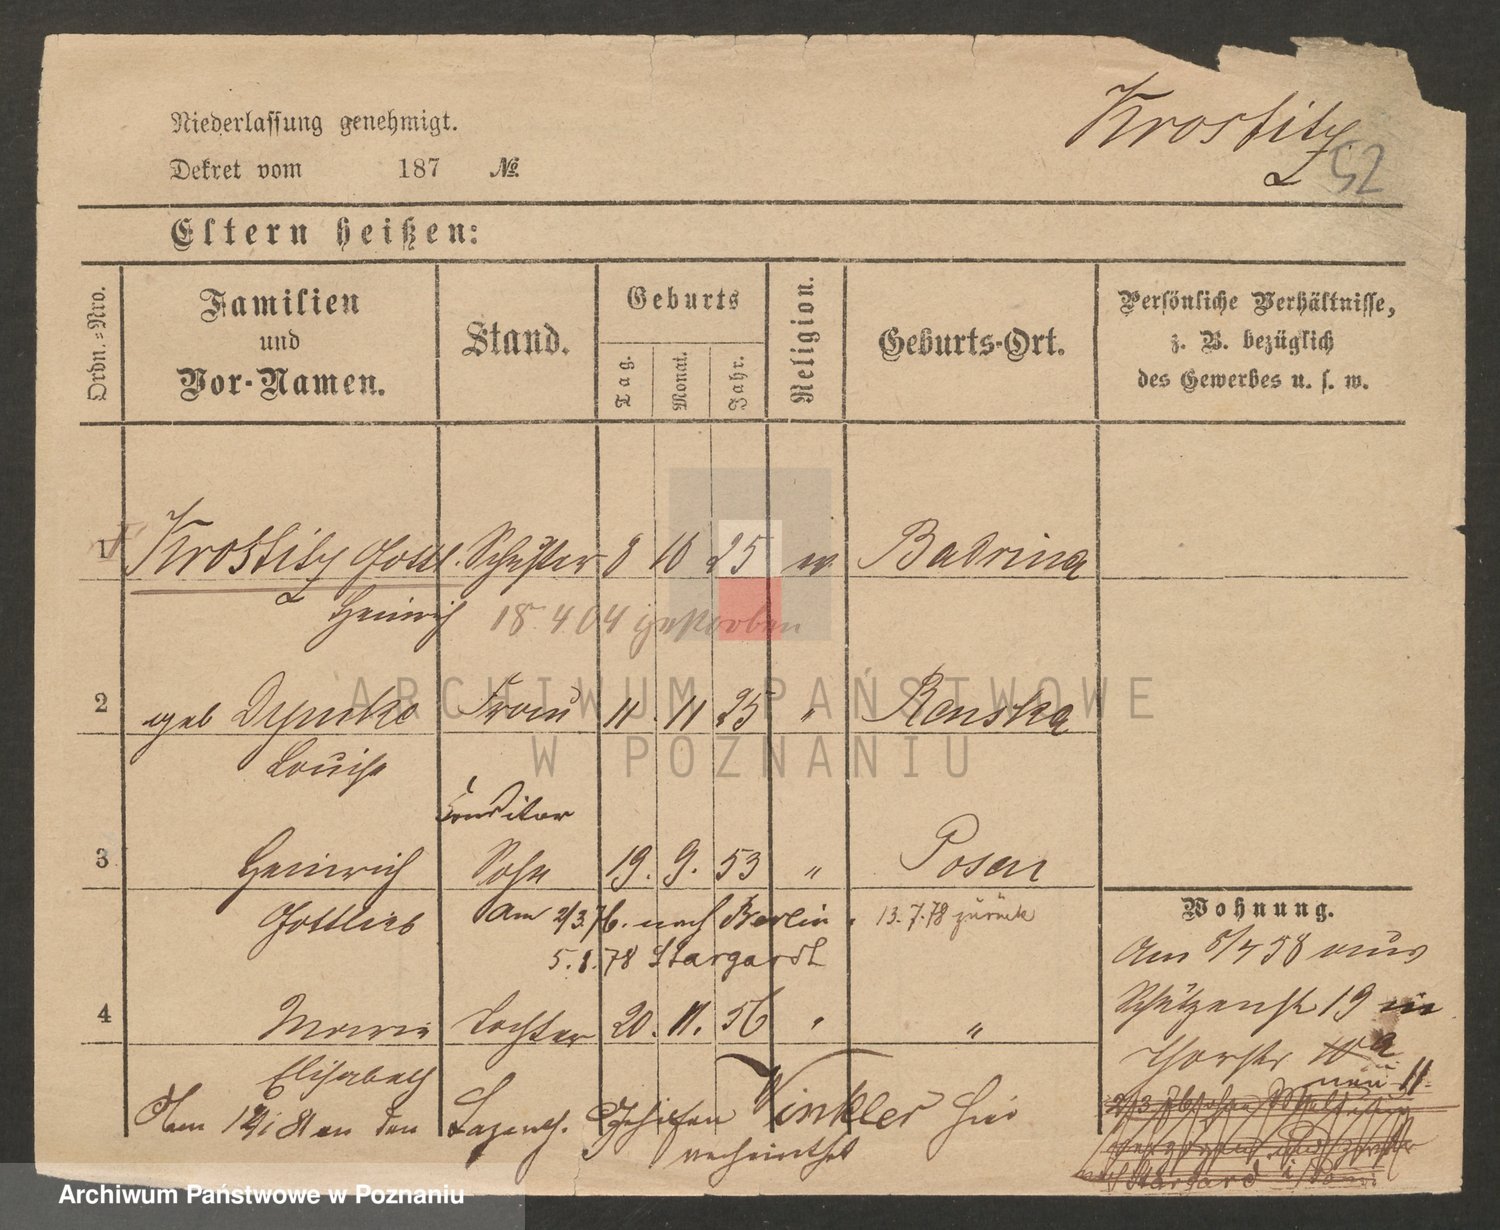 Krostitz
52
Niederlassung genehmigt.
Dekret vom 187 №
Eltern heißen:
Ordn.=Nro.
Familien
und
Vor-Namen.
Stand.
Geburts
Tag.
Monat.
Jahr.
Religion.
Geburts-Ort.
Persönliche Verhältnisse,
z. B. bezüglich
des Gewerbes u. s. w.
1 Krostitz Gottl. Schuster 8 10 25 ev Badrina
Heinrich 18.4 04 gestorben
ARCHIWUM PAŃSTWOWE
W POZNANIU
2 geb Frau 11. 11 25 "
Louise
Conditor
3 Heinrich Sohn 19. 9. 53 " Posen
Gottlieb am 2/3.76. nach Berlin. 13.7.78 zurück
5.1.78 Stargardt
Wohnung.
Am 5/4 58 aus
Schützenstr 19 in
4 Marie Tochter 20. 11. 56 " "
Elisabeth
neu 11.
Am den Lazareth. Gehilfen Winkler hier
verheirathet
Archiwum Państwowe w Poznaniu